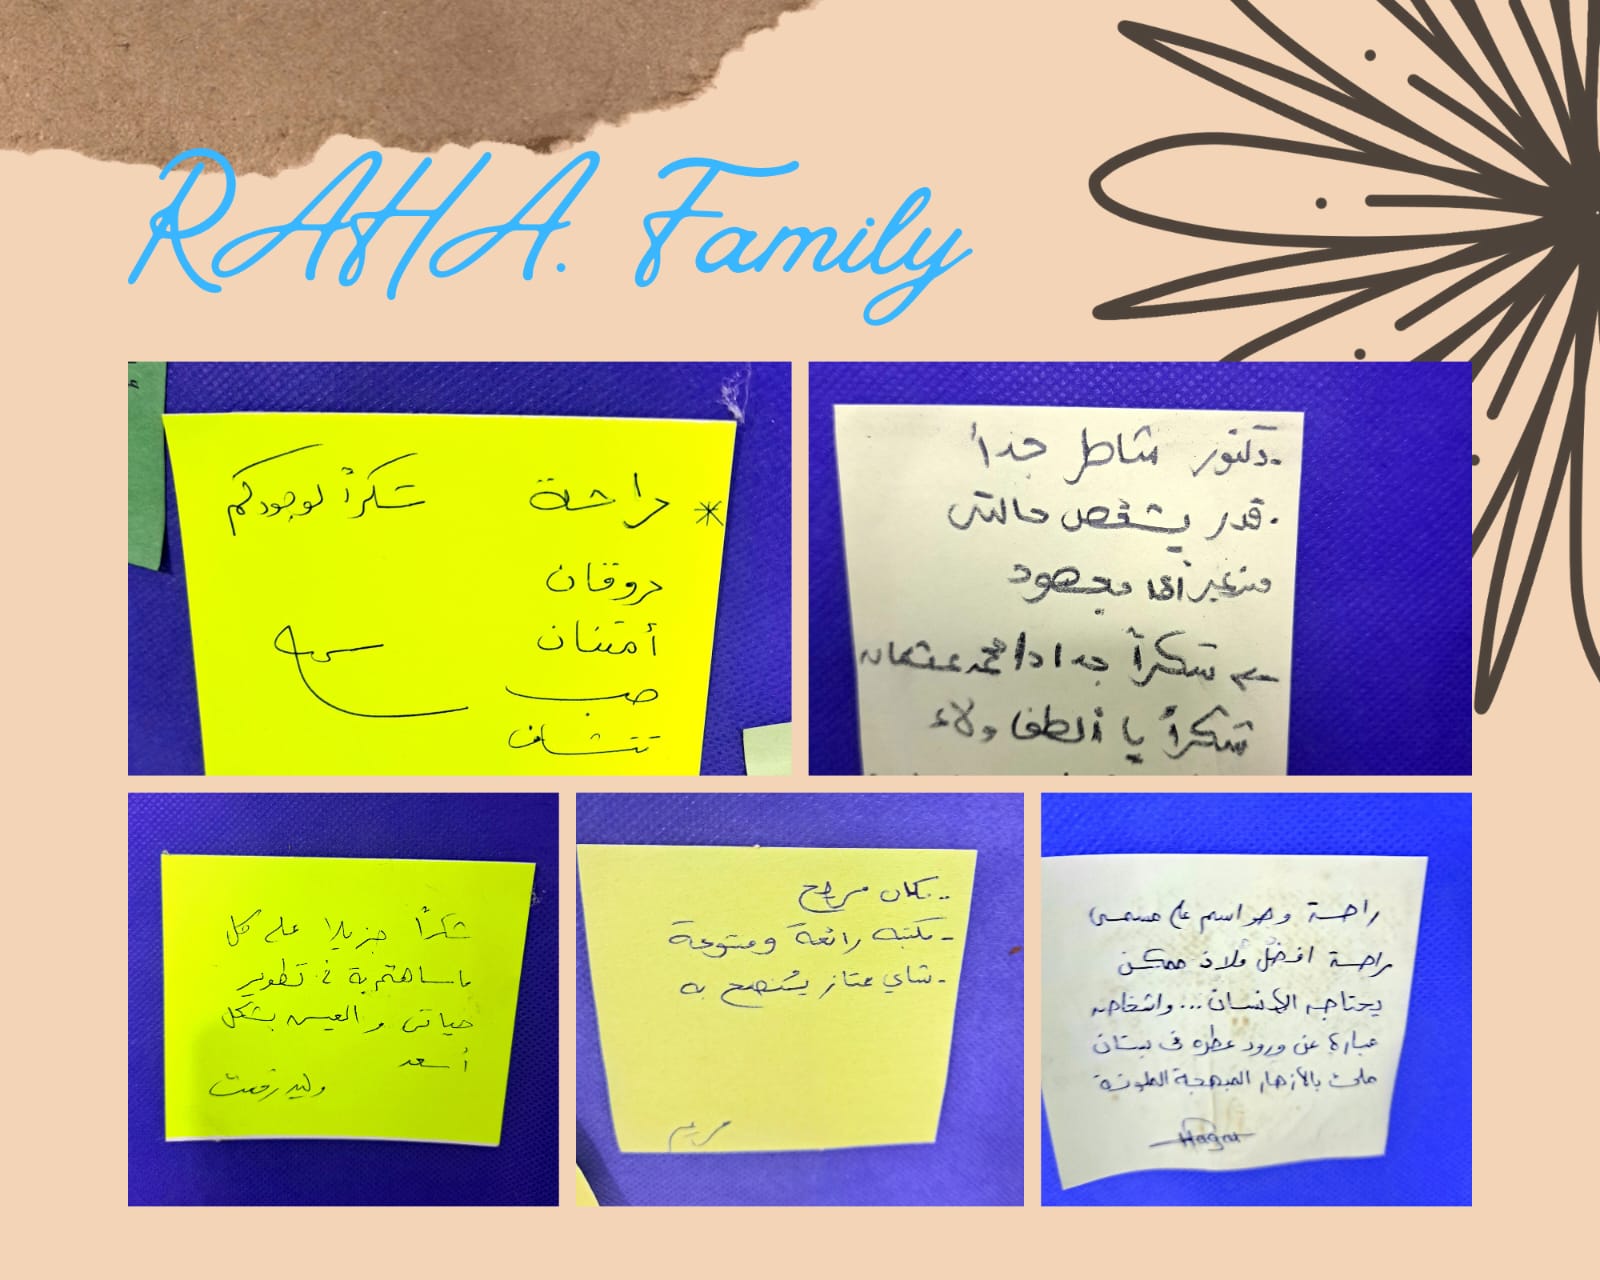 RAHA. Family
* راحة شكراً لوجودكم
روقان
أمتنان
حب
- دكتور شاطر جداً
- قدر يشخص حالتى
من غير أى مجهود
شكراً جدا د/ محمد عثمان
شكراً يا ألطف ولاء
شكراً جزيلا على كل
ما ساهتم بة فى تطوير
حياتى و العيش بشكل
أسعد
وليد رفعت
- مكان مريح
- مكتبه رائعة ومتنوعة
- شاي ممتاز يُنصح به
مريم
راحة وهو اسم على مسمى
راحة افضل ملاذ ممكن
يحتاجه الأنسان ... واشخاصه
عبارة عن ورود عطره فى بستان
ملئ بالأزهار المبهجة الملونة
Hagar